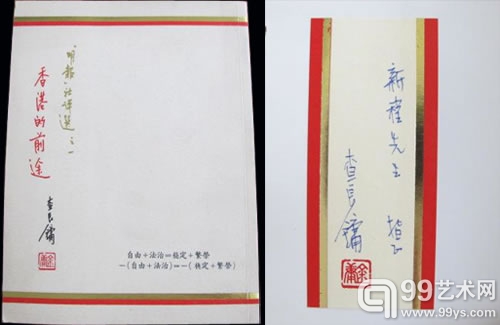 明報社評選之一
香港的前途
查良鏞
自由+法治=穩定+繁榮
—(自由+法治)=—(穩定+繁榮)
先生
查良鏞
99艺术网
www.99ys.com